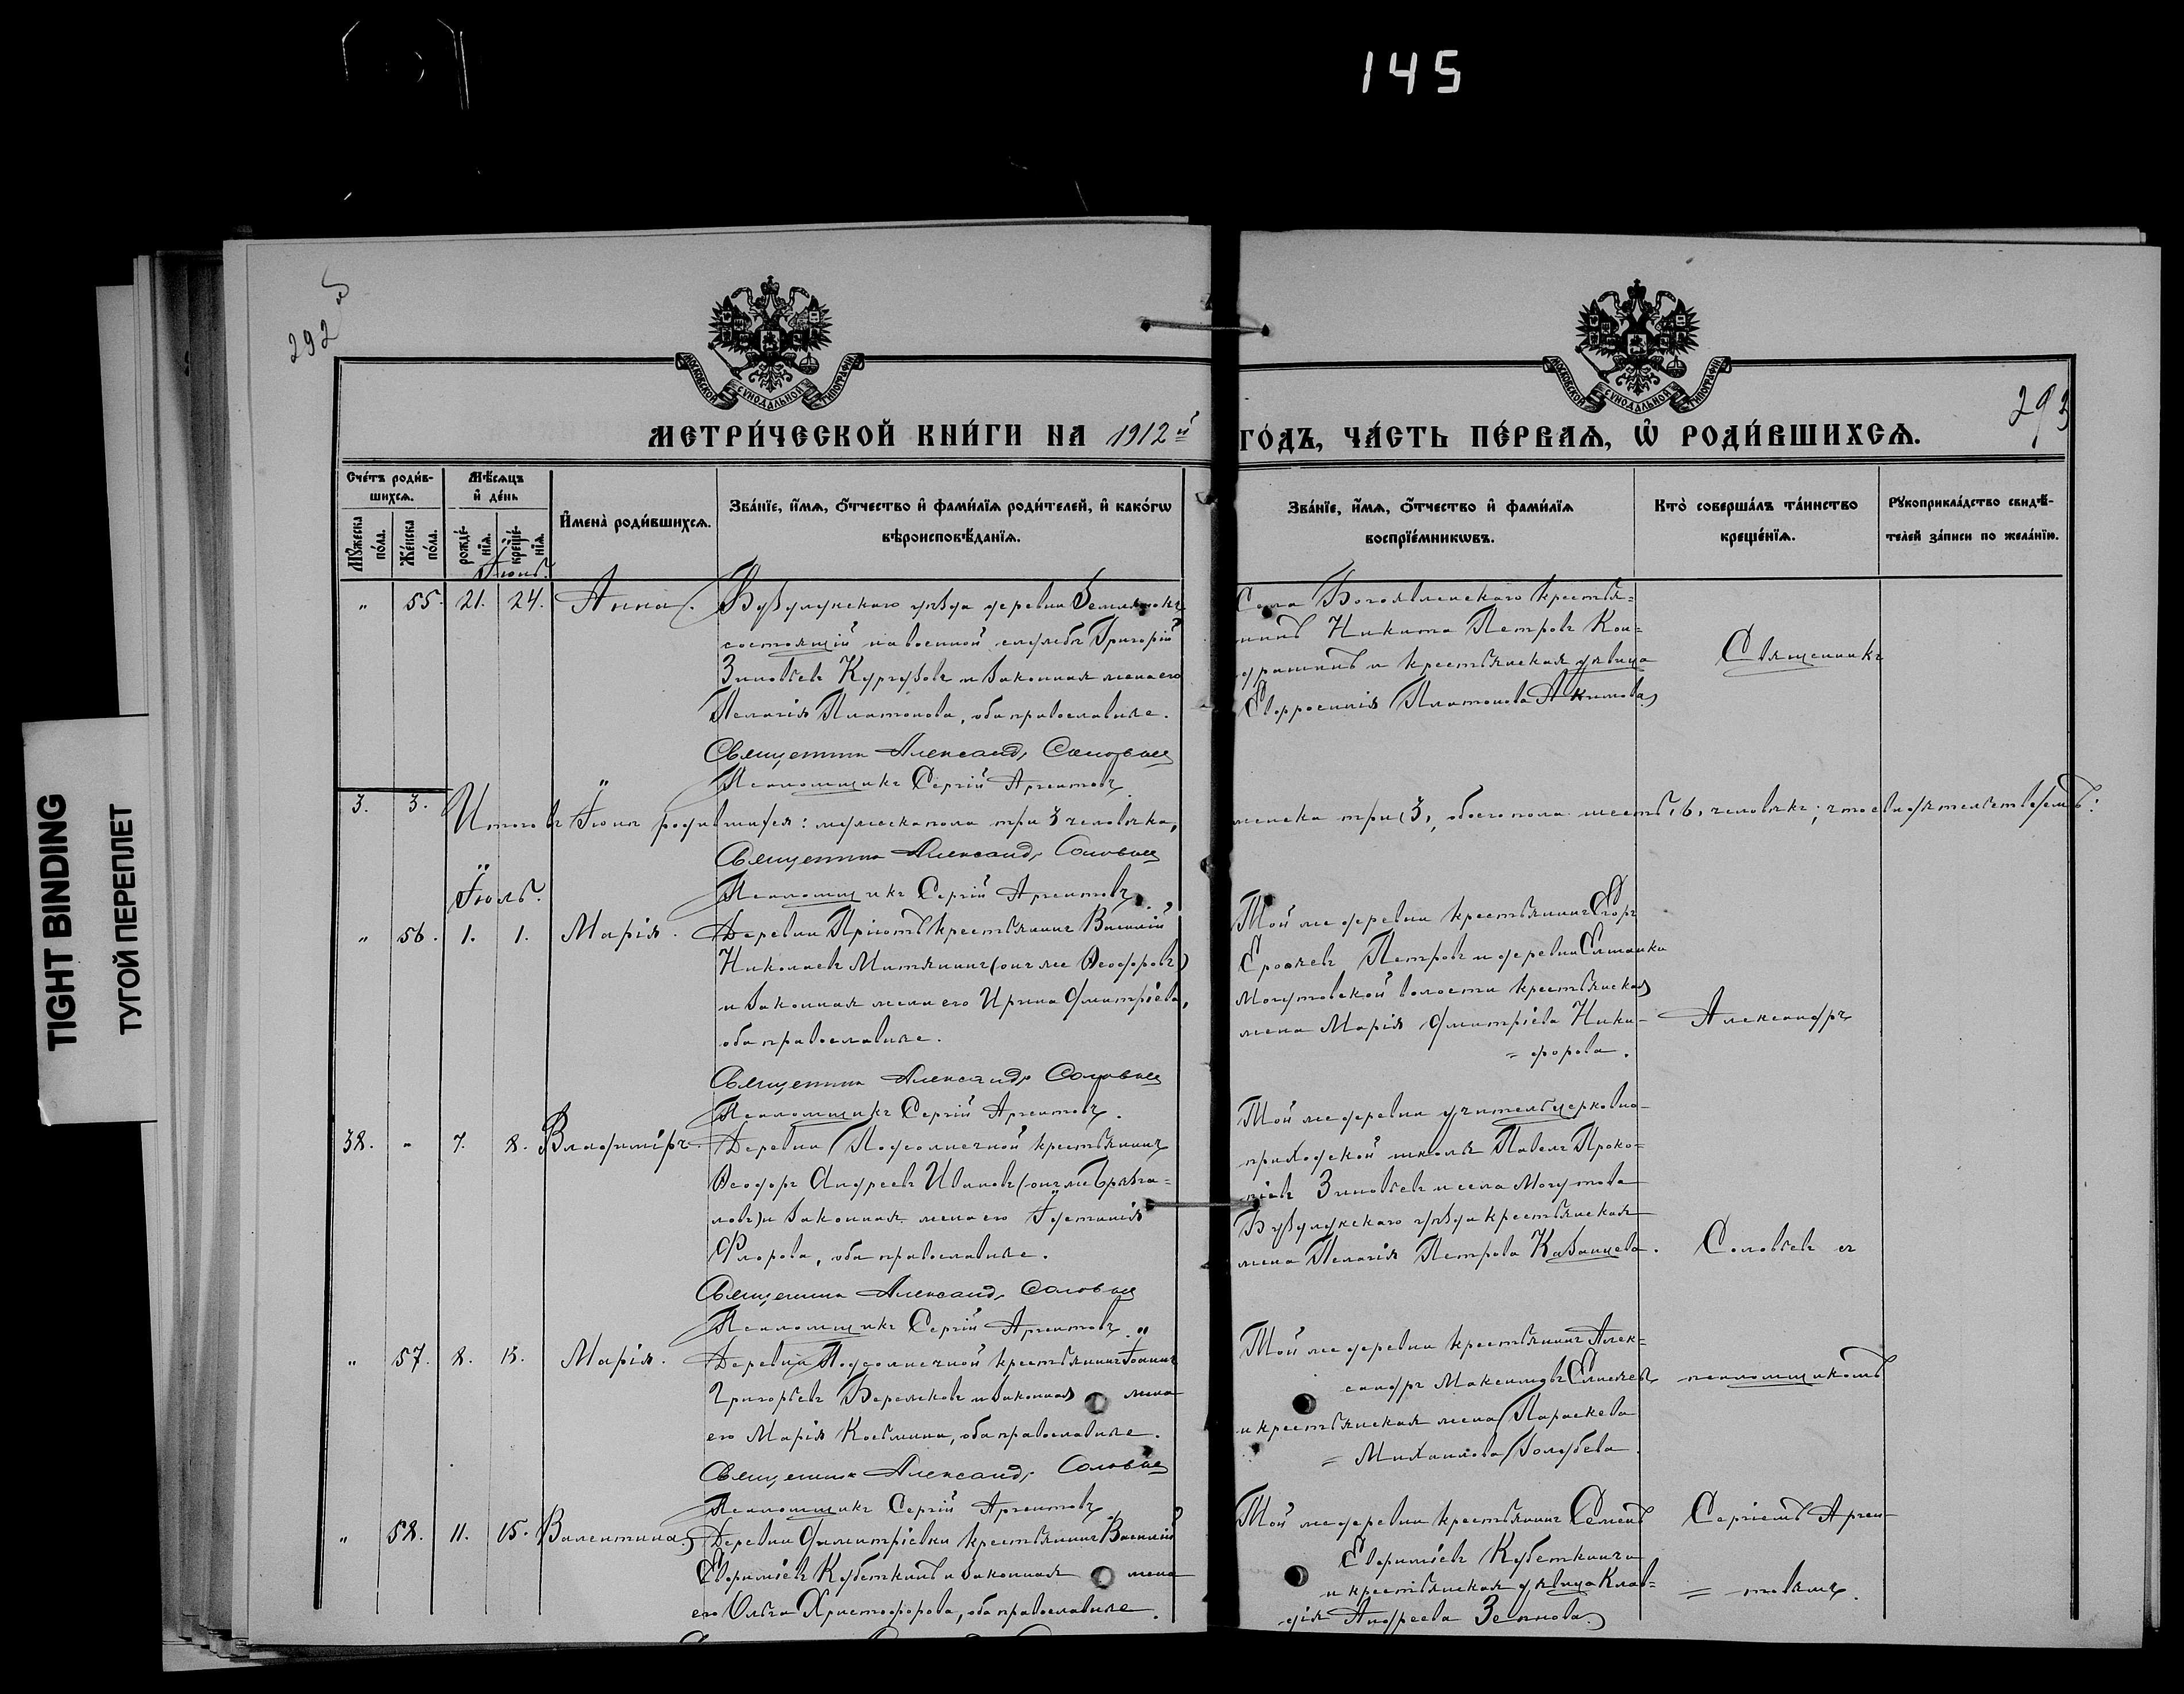 145
292
293
МОСКОВСКОЙ СѴНОДАЛЬНОЙ ТИПОГРАФІИ
МОСКОВСКОЙ СѴНОДАЛЬНОЙ ТИПОГРАФІИ
МЕТРИ́ЧЕСКОЙ КНИ́ГИ НА 1912й
ГО́ДЪ, ЧА́СТЬ ПЕ́РВАѦ, Ѡ РОДИ́ВШИХСѦ.
Сче́тъ роди́в-
шихсѧ.
Мꙋ́жеска по́ла.
Же́нска по́ла.
Мѣ́сѧцъ
и҆ де́нь
рожде́-
нїѧ.
креще́-
нїѧ.
И҆мена̀ роди́вшихсѧ.
Зва́нїе, и҆́мѧ, ѻ҆́тчество и҆ фами́лїѧ роди́телей, и҆ како́гѡ
вѣроисповѣ́данїѧ.
Зва́нїе, и҆́мѧ, ѻ҆́тчество и҆ фами́лїѧ
воспрїе́мникѡвъ.
Кто̀ соверша́лъ та́инство
креще́нїѧ.
Рꙋкоприкла́дство свидѣ́-
телей за́писи по жела́нїю.
Іюнь.
" 55. 21. 24. Анна.
Бузулукскаго уѣзда деревни Землянокъ
состоящій на военной службѣ Григорій
Зиновьевъ Кургузовъ и законная жена его
Пелагія Платонова, оба православные.
Священникъ Александръ Соловьев
Псаломщикъ Сергій Аргентовъ
Села Богоявленскаго крестья=
нинъ Никита Петровъ Кон=
драшинъ и крестьянская дѣвица
Евфросинія Платонова Акимова
Священникъ
3. 3.
Итого въ Іюнѣ родившихся: мужеска пола три 3 человѣка,
женска три (3, обоего пола шесть, 6, человѣкъ; что свидѣтельствуемъ:
Священникъ Александръ Соловьев
Псаломщикъ Сергій Аргентовъ
Іюль.
" 56. 1. 1. Марія.
Деревни Пріютъ крестьянинъ Василій
Николаевъ Митянинъ (онъ же Ѳеодоровъ)
и законная жена его Ирина Дмитріева,
оба православные.
Священникъ Александръ Соловьев
Псаломщикъ Сергій Аргентовъ.
Той же деревни крестьянинъ Егоръ
Ерофѣевъ Петровъ и деревни Елшанки
Могутовской волости крестьянская
жена Марія Дмитріева Ники-
= форова.
Александръ
38. " 7. 8. Владиміръ.
Деревни Подсолнечной крестьянинъ
Ѳеодоръ Андреевъ Ивановъ (онъ же Брязга-
ловъ) и законная жена его Іустинія
Флорова, оба православные.
Священникъ Александръ Соловьев
Псаломщикъ Сергій Аргентовъ
Той же деревни учитель церковно-
приходской школы Павелъ Проко=
піевъ Зиновьевъ и села Могутова
Бузулукскаго уѣзда крестьянская
жена Пелагія Петрова Казанцева.
Соловьевъ съ
" 57. 8. 15. Марія.
Деревни Подсолнечной крестьянинъ Іоаннъ
Григорьевъ и законная жена
его Марія Косьмина, оба православные.
Священникъ Александръ Соловьев
Псаломщикъ Сергій Аргентовъ
Той же деревни крестьянинъ Алек=
сандръ Максимовъ Елисеевъ
и крестьянская жена Параскева
= Михаилова Голубева.
псаломщикомъ
" 58. 11. 15. Валентина.
Деревни Димитріевки крестьянинъ Василій
Евфиміевъ Кубеткинъ и законная жена
его Ольга Христофорова, оба православные.
Той же деревни крестьянинъ Семенъ
Евфиміевъ Кубеткинъ
и крестьянская дѣвица Клав=
дія Андреева
Сергіемъ Арген-
= товымъ.
TIGHT BINDING
ТУГОЙ ПЕРЕПЛЕТ